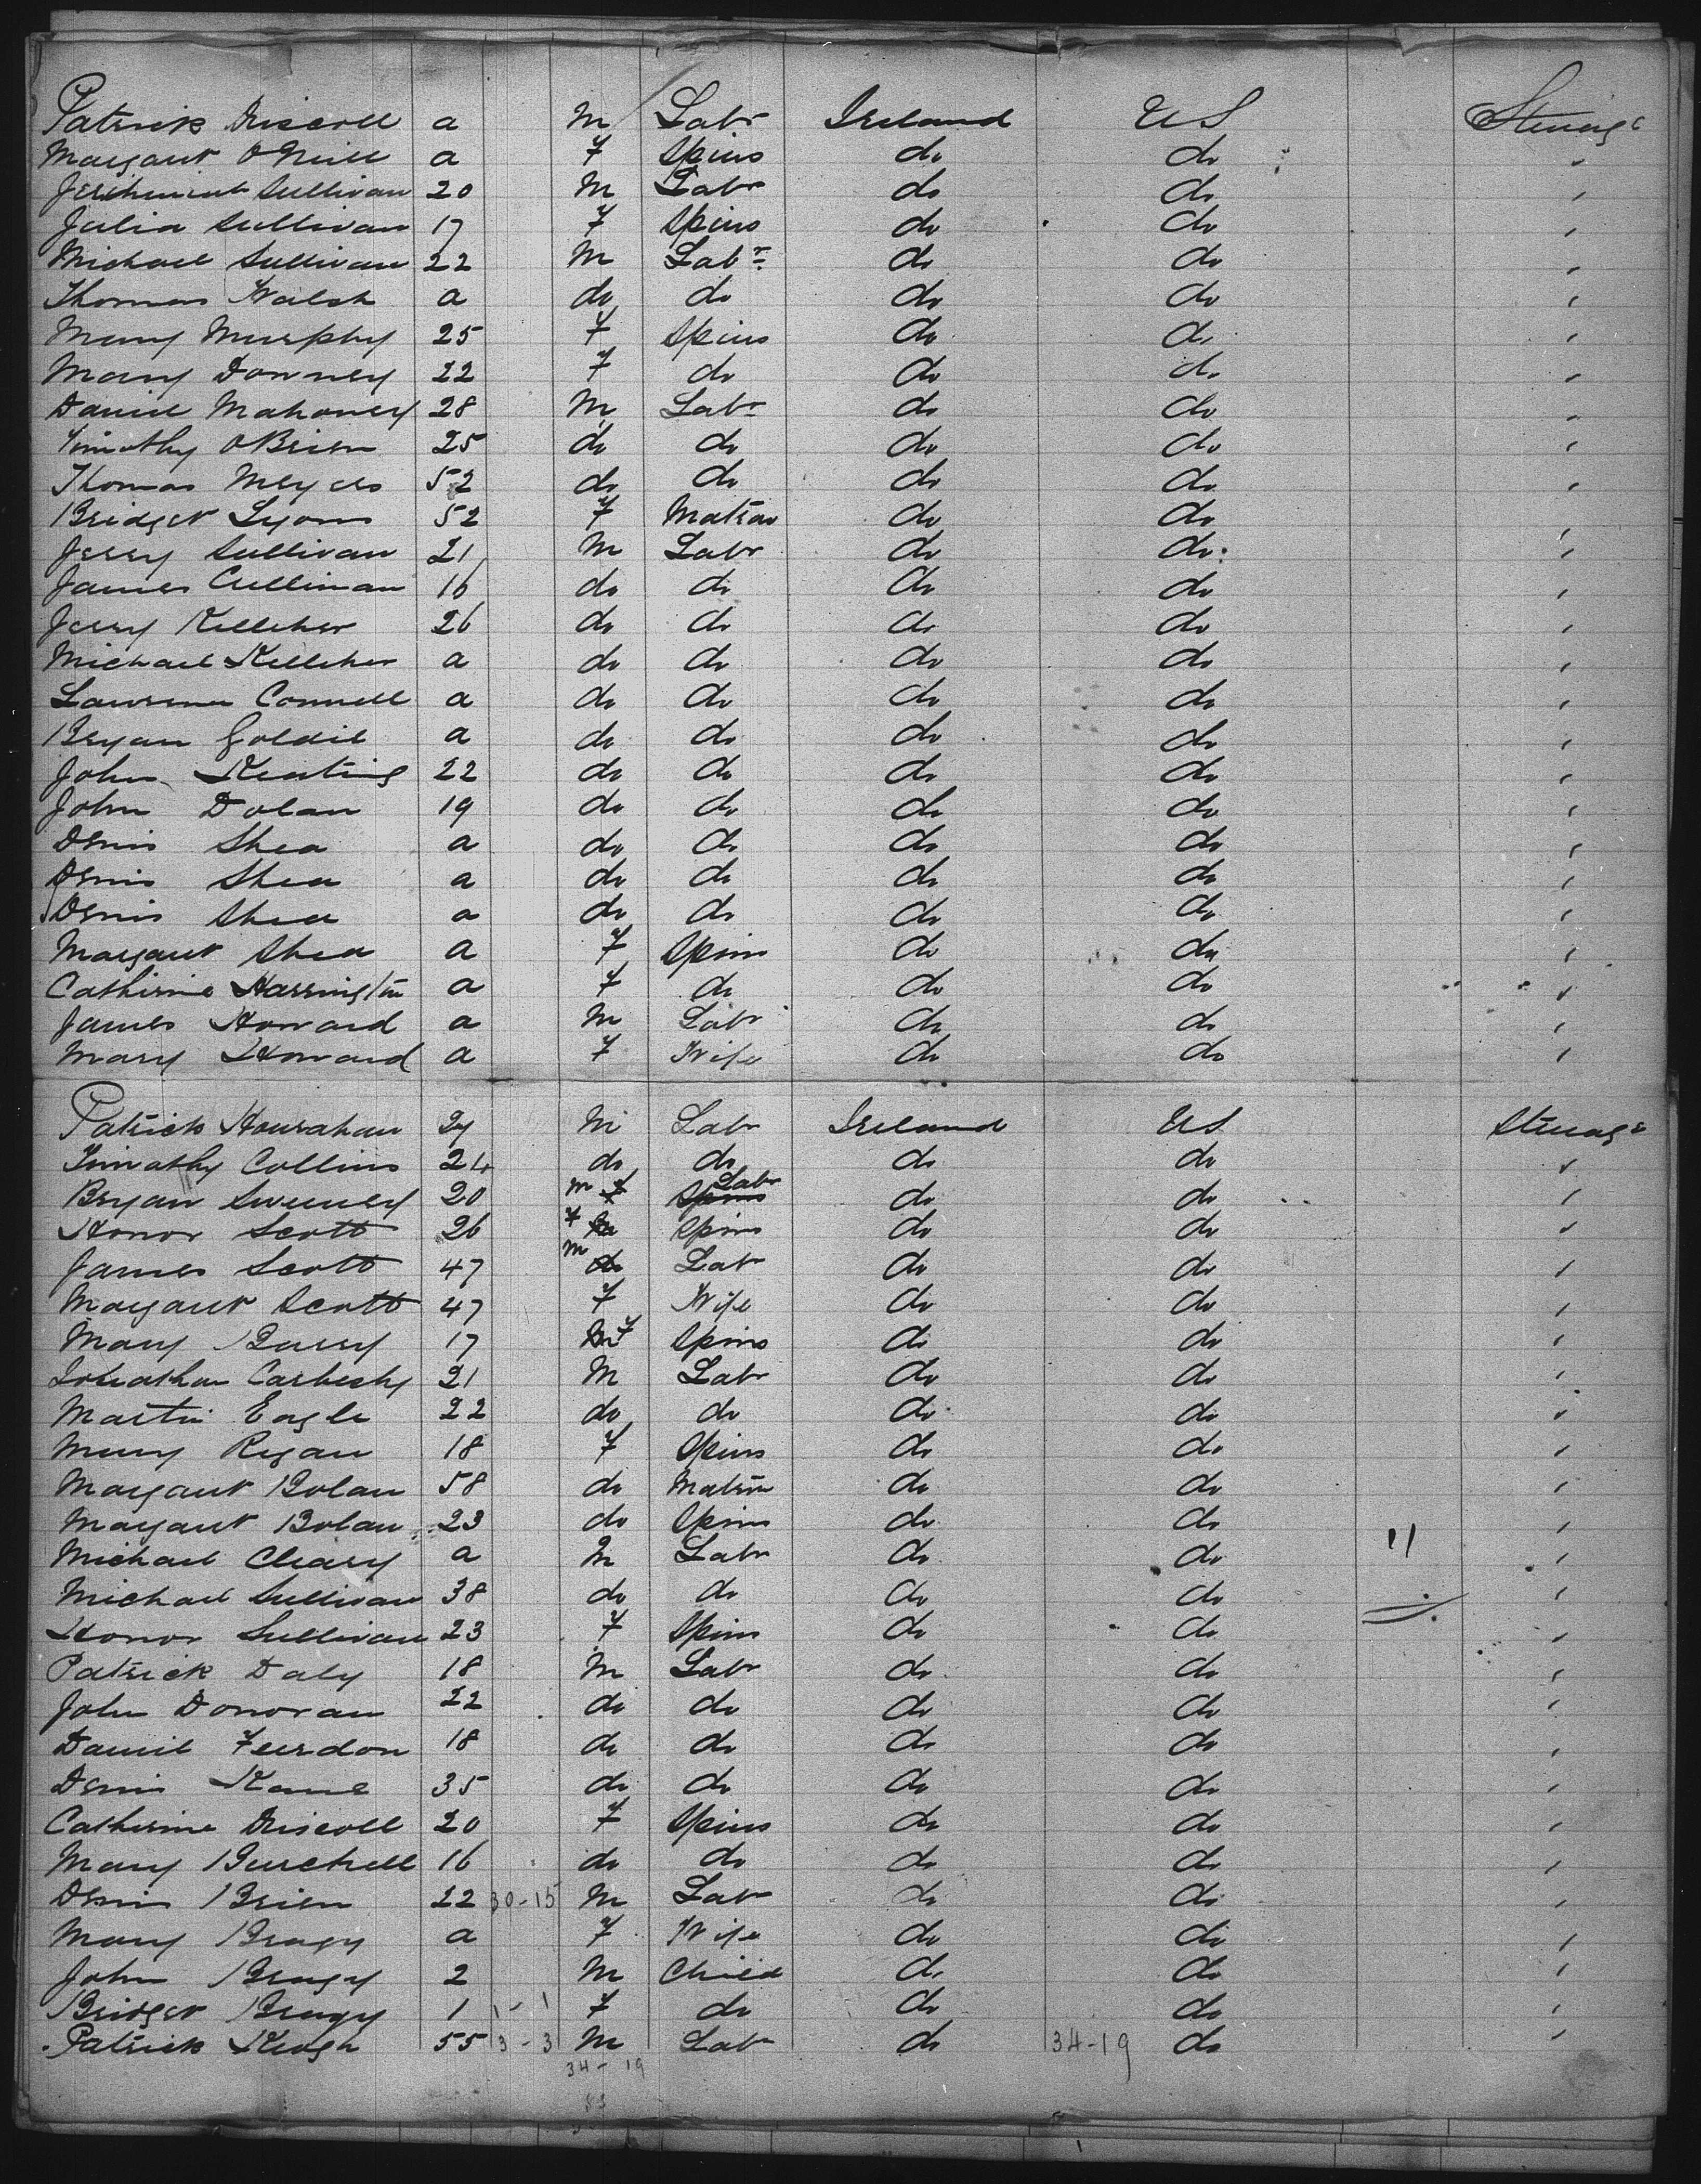 Patrick Driscoll a M Labr Ireland US Steerage
Margaret O'Neill a F Spins do do "
Jerehmiah Sullivan 20 M Labr do do "
Julia Sullivan 17 F Spins do do "
Michael Sullivan 22 M Labr do do "
Thomas Walsh a do do do do "
Mary Murphy 25 F Spins do do "
Mary Downey 22 F do do do "
Daniel Mahoney 28 M Labr do do "
Timothy OBrien 25 do do do do "
Thomas Meyers 52 do do do do "
Bridget Lyons 52 F Matron do do "
Jerry Sullivan 21 M Labr do do "
James Cullinan 16 do do do do "
Jerry Kelleher 26 do do do do "
Michael Kelleher a do do do do "
Lawrence Connell a do do do do "
Bryan Goldie a do do do do "
John Keating 22 do do do do "
John Dolan 19 do do do do "
Denis Shea a do do do do "
Denis Shea a do do do do "
Denis Shea a do do do do "
Margaret Shea a F Spins do do "
Catherine Harrington a F do do do "
James Howard a M Labr do do "
Mary Howard a F Wife do do "
Patrick Hourahan 24 M Labr Ireland US Steerage
Timothy Collins 24 do do do do "
Bryan Sweeney 20 M Labr do do "
Honor Scott 26 F Spins do do "
James Scott 47 M Labr do do "
Margaret Scott 47 F Wife do do "
Mary Barry 17 F Spins do do "
Jonathan 21 M Labr do do "
Martin Eagle 22 do do do do "
Mary Regan 18 F Spins do do "
Margaret Bolan 58 do Matron do do "
Margaret Bolan 23 do Spins do do "
Michael Cleary a M Labr do do 11 "
Michael Sullivan 38 do do do do "
Honor Sullivan 23 F Spins do do "
Patrick Daly 18 M Labr do do "
John Donovan 22 do do do do "
Daniel Feerdon 18 do do do do "
Denis Kane 35 do do do do "
Catherine Driscoll 20 F Spins do do "
Mary Burchell 16 do do do do "
Denis Brien 22 30-15 M Labr do do "
Mary Bragy a F Wife do do "
John Bragy 2 M Child do do "
Bridget Bragy 1 1-1 F do do do "
Patrick Keogh 55 3-3 M Labr do 34-19 do "
34-19